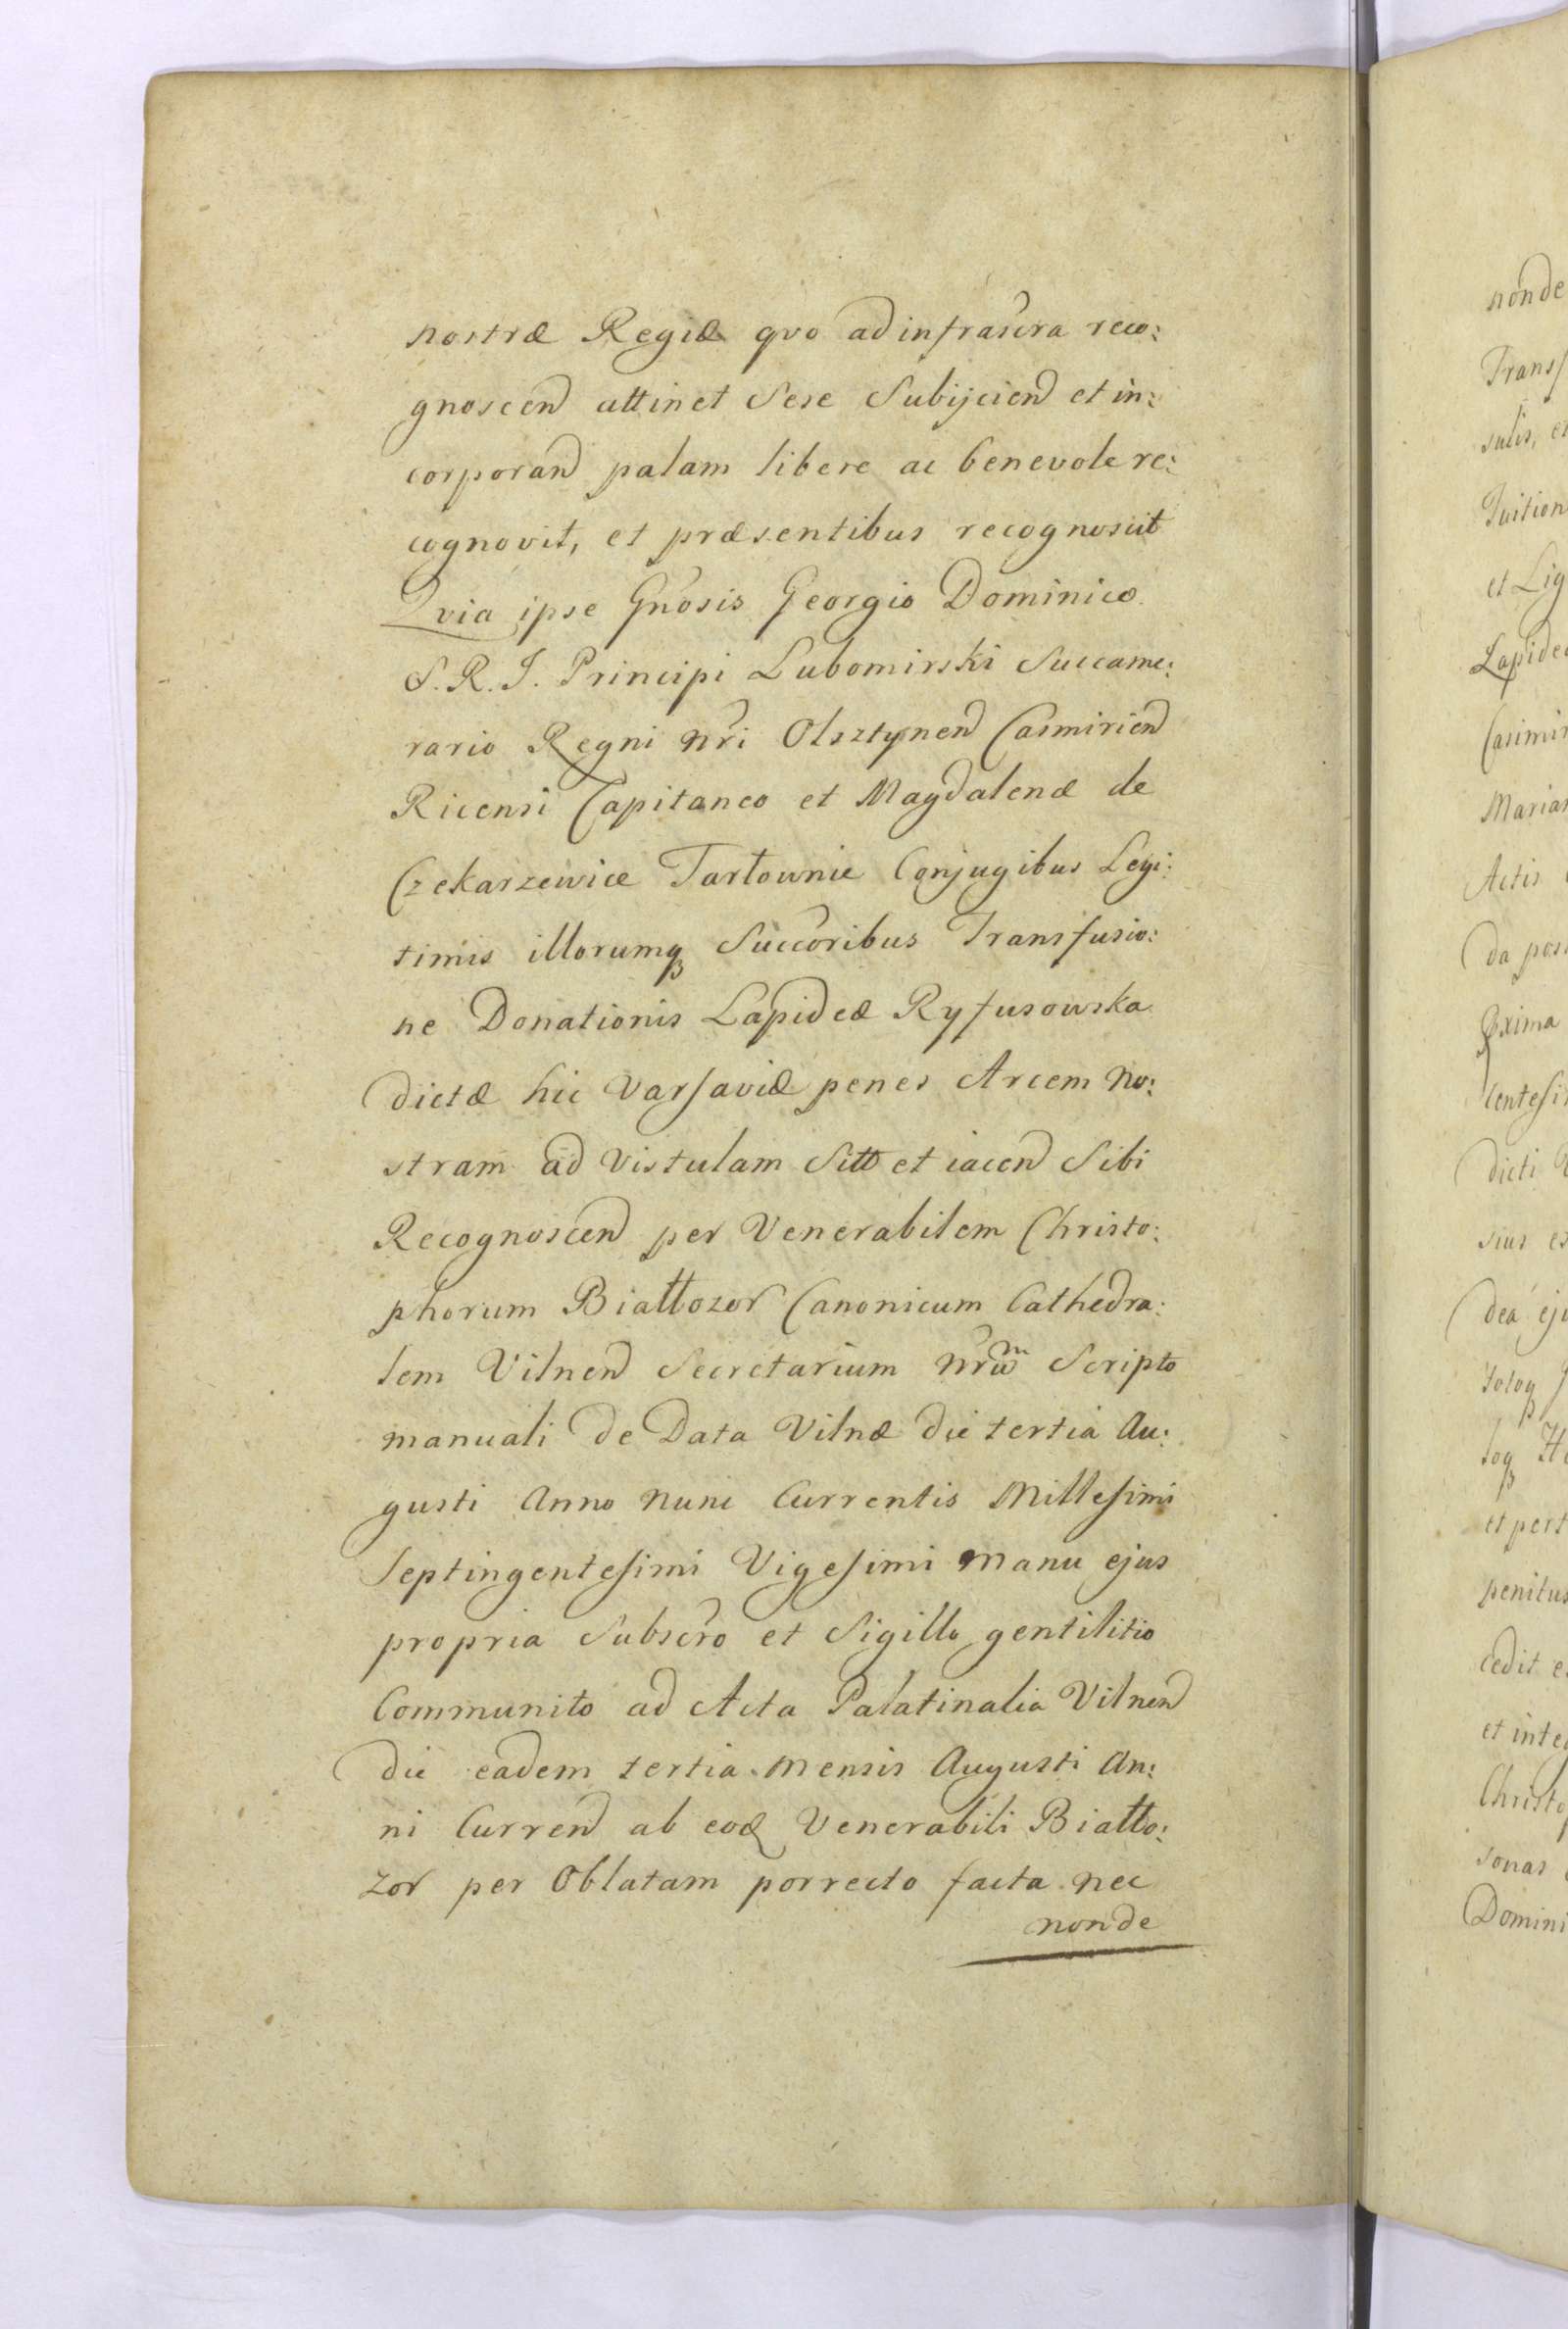 nostræ Regiæ qvo ad infrascra reco:
gnoscend attinet Sese Subijciend et in:
corporand palam libere ac benevole re:
cognovit, et præsentibus recognoscit
Qvia ipse Gnosis Georgio Dominico
S. R. J. Principi Lubomirski Succame:
rario Regni nri Olsztynend Casmiriend
Ricensi Capitaneo et Magdalenæ de
Czekarzewice Tarłownie Conjugibus Legi:
timis illorumq Succoribus Transfusio:
ne Donationis Lapideæ Ryfusowska
dictæ hic Varsaviæ penes Arcem No:
stram ad Vistulam Sitt et iacend Sibi
Recognoscend per Venerabilem Christo:
phorum Białłozor Canonicum Cathedra:
lem Vilnend Secretarium Nrum Scripto
manuali de Data Vilnæ die tertia Au:
gusti Anno nunc Currentis Millesimi
Septingentesimi Vigesimi Manu ejus
propria Subscro et Sigillo gentilitio
Communito ad Acta Palatinalia Vilnend
die eadem tertia Mensis Augusti An:
ni Currend ab eod Venerabili Białło:
zor per Oblatam porrecto facta nec
nonde
nonde
Trans
sulis, et
Tuition
et Lig
Lapide
Casimir
Marian
Actis
da pos
centesi
dicti
sius es
dea ej
totoq
et pert
penitus
cedit e
et inte
Christo
sonas
Domini